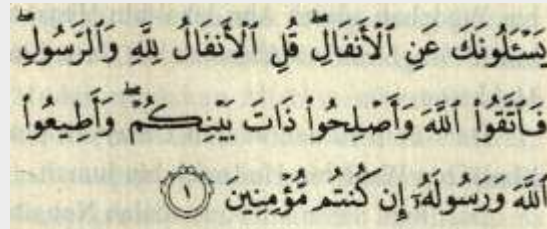 يَسْـَٔلُونَكَ عَنِ ٱلْأَنفَالِ ۖ قُلِ ٱلْأَنفَالُ لِلَّهِ وَٱلرَّسُولِ ۖ
فَٱتَّقُوا۟ ٱللَّهَ وَأَصْلِحُوا۟ ذَاتَ بَيْنِكُمْ ۖ وَأَطِيعُوا۟
ٱللَّهَ وَرَسُولَهُۥٓ إِن كُنتُم مُّؤْمِنِينَ ١